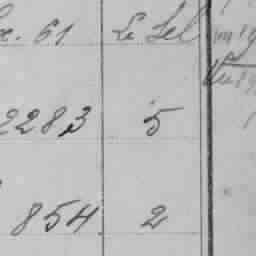 61 Le Sel
2283 5
854 2